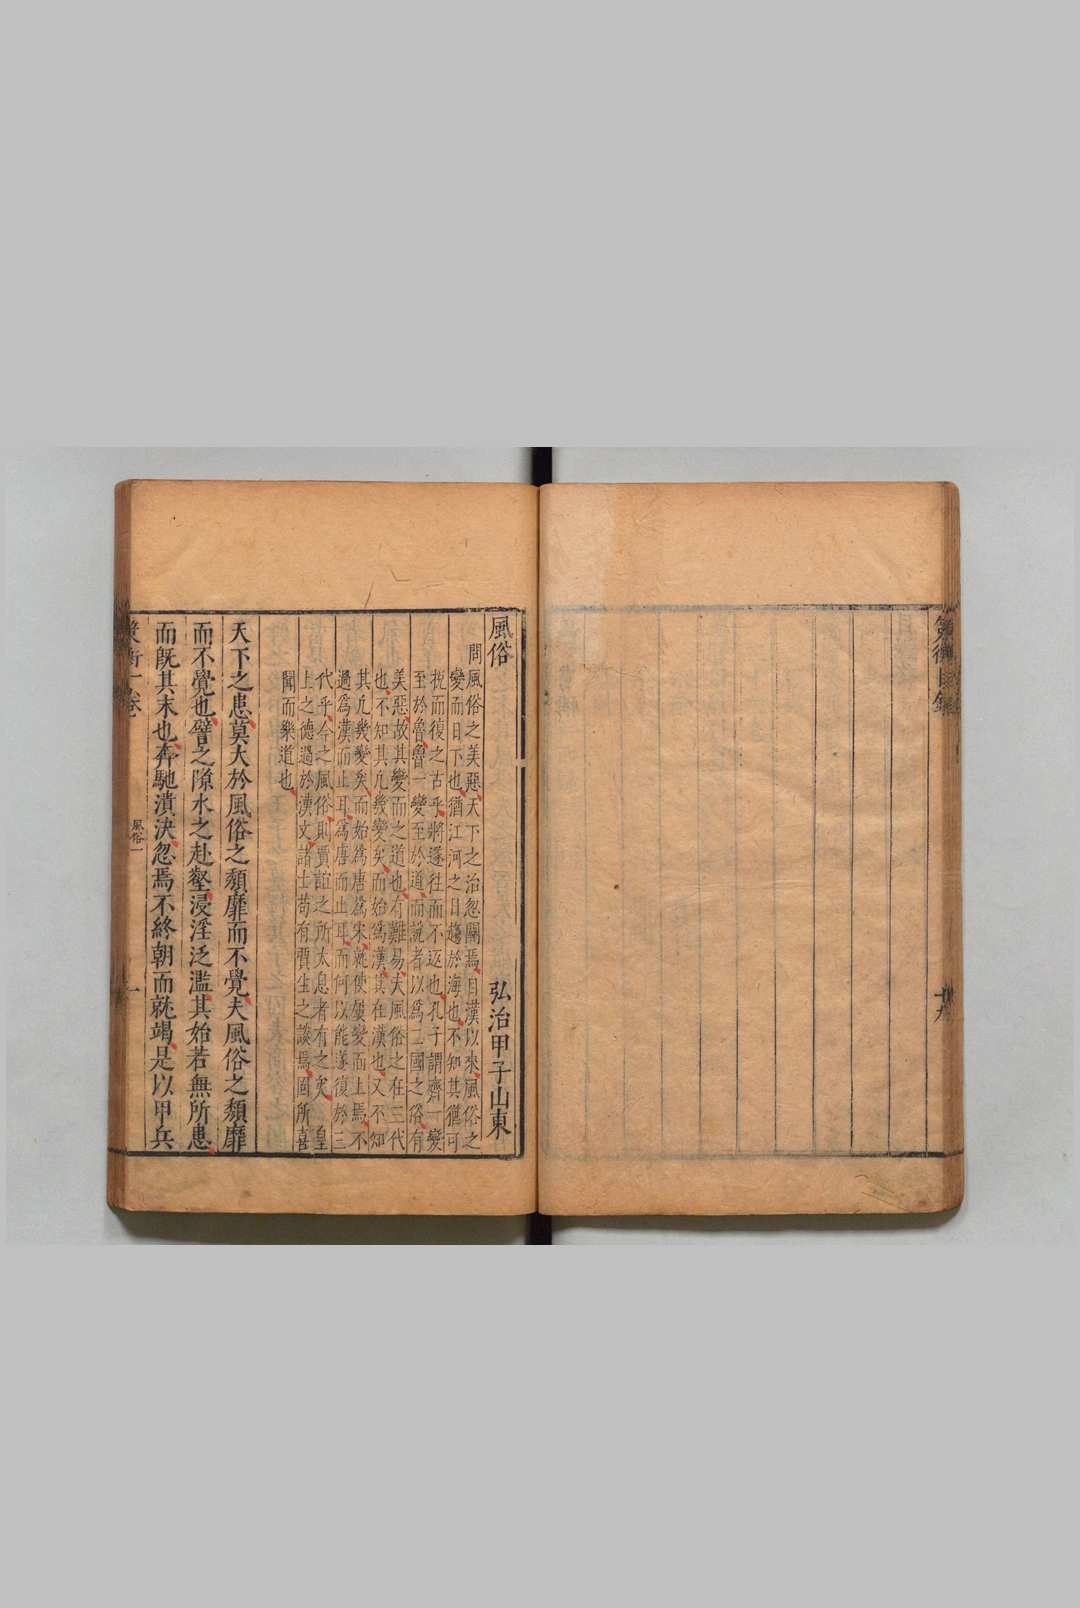 策衡目錄
十九
風俗 弘治甲子山東
問風俗之美惡天下之治忽關焉自漢以來風俗之
變而日下也猶江河之日趨於海也不知其猶可
挽而復之古乎將遂往而不返也孔子謂齊一變
至於魯魯一變至於道而說者以爲二國之俗有
美惡故其變而之道也有難易夫風俗之在三代
也不知其凢幾變矣而始爲漢其在漢也又不知
其凢幾變矣而始爲唐爲宋就使屢變而上焉不
過爲漢而止耳爲唐而止耳而何以能遂復於三
代乎今之風俗則賈誼之所太息者有之矣皇
上之德過於漢文諸士苟有賈生之談焉固所喜
聞而樂道也
天下之患莫大於風俗之頹靡而不覺夫風俗之頹靡
而不覺也譬之隙水之赴壑浸淫泛濫其始若無所患
而旣其末也奔馳潰決忽焉不終朝而就竭是以甲兵
策衡一卷
風俗一
一